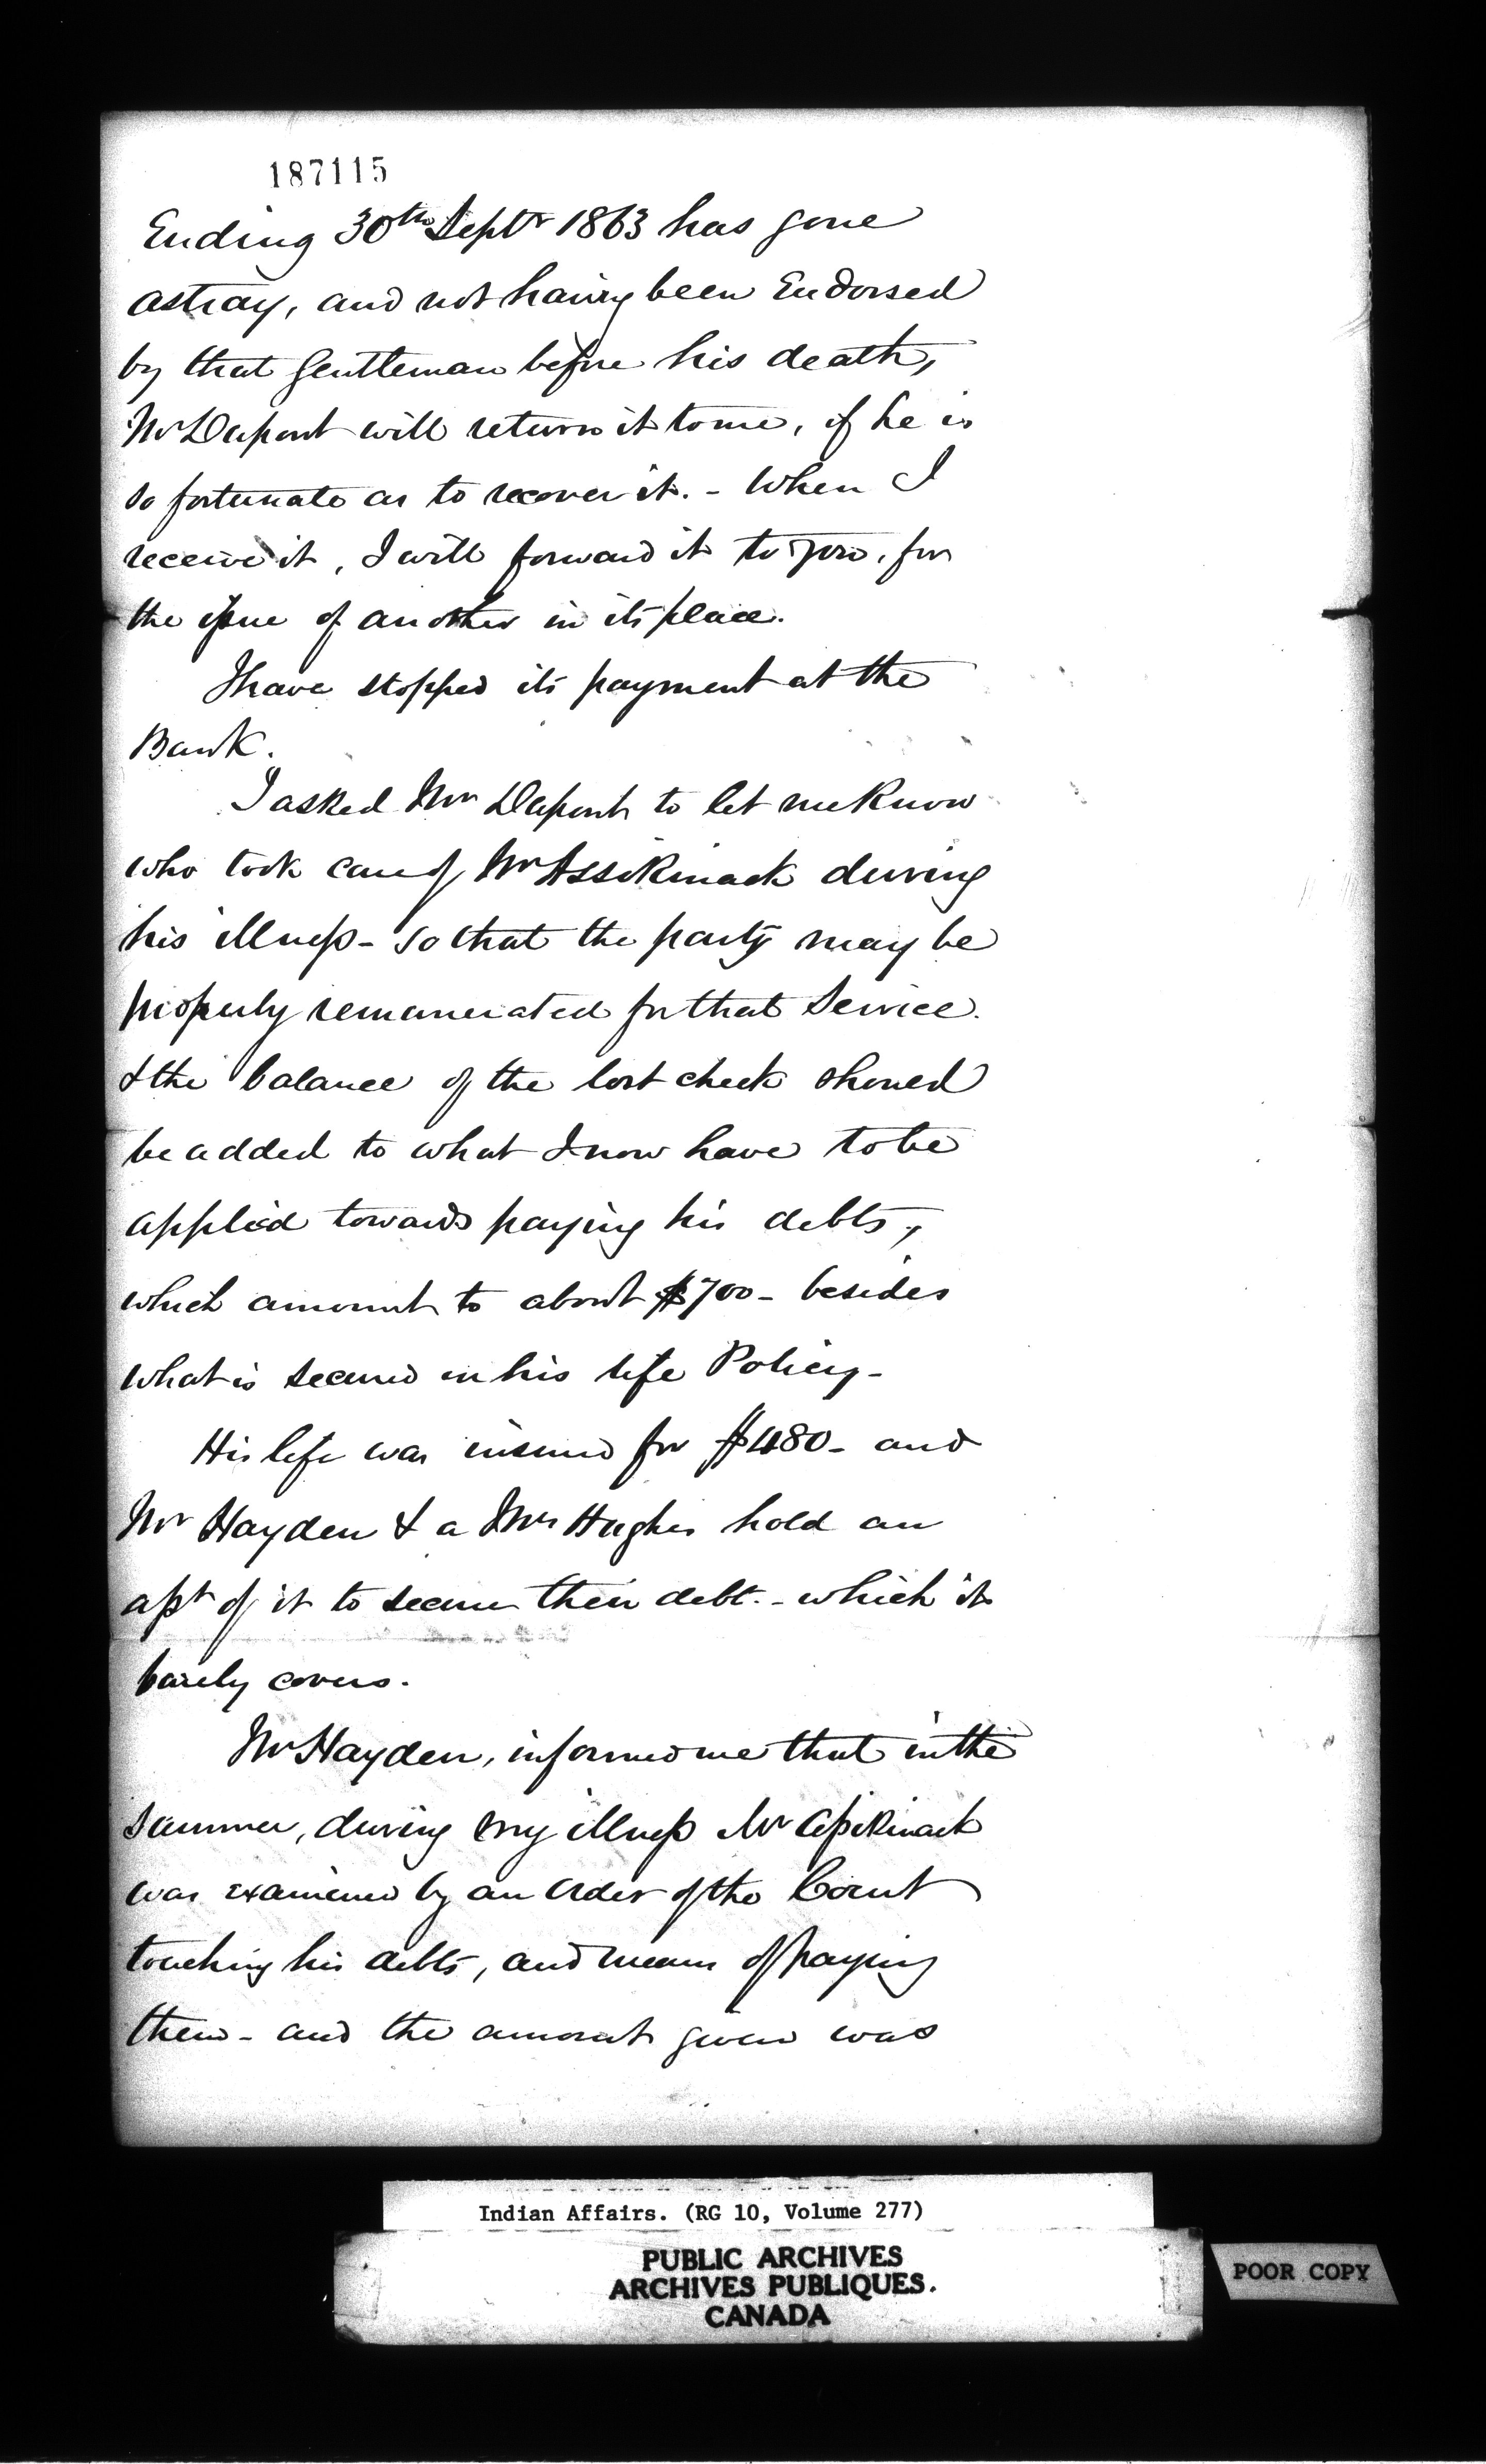 187115
Ending 30th Septr 1863 has gone
astray, and not having been Endorsed
by that Gentleman before his death,
Mr Dupont will return it to me, if he is
so fortunate as to recover it. - When I
receive it, I will forward it to you, for
the issue of another in its place.
I have stopped its payment at the
Bank.
I asked Mr Dupont to let me know
who took care of Mr Assikinack during
his illness - so that the party may be
properly remunerated for that Service.
& the balance of the lost check should
be added to what I now have to be
applied towards paying his debts,
which amount to about $700 - besides
what is secured in his life Policy -
His life was insured for $480 - and
Mr Hayden & a Mrs Hughes hold an
asst of it to secure their debt. - which it
barely covers.
Mr Hayden, informed me that in the
summer, during my illness Mr Assikinack
was examined by an order of the Court
touching his debts, and means of paying
them - and the amount given was
Indian Affairs. (RG 10, Volume 277)
PUBLIC ARCHIVES
ARCHIVES PUBLIQUES.
CANADA
POOR COPY